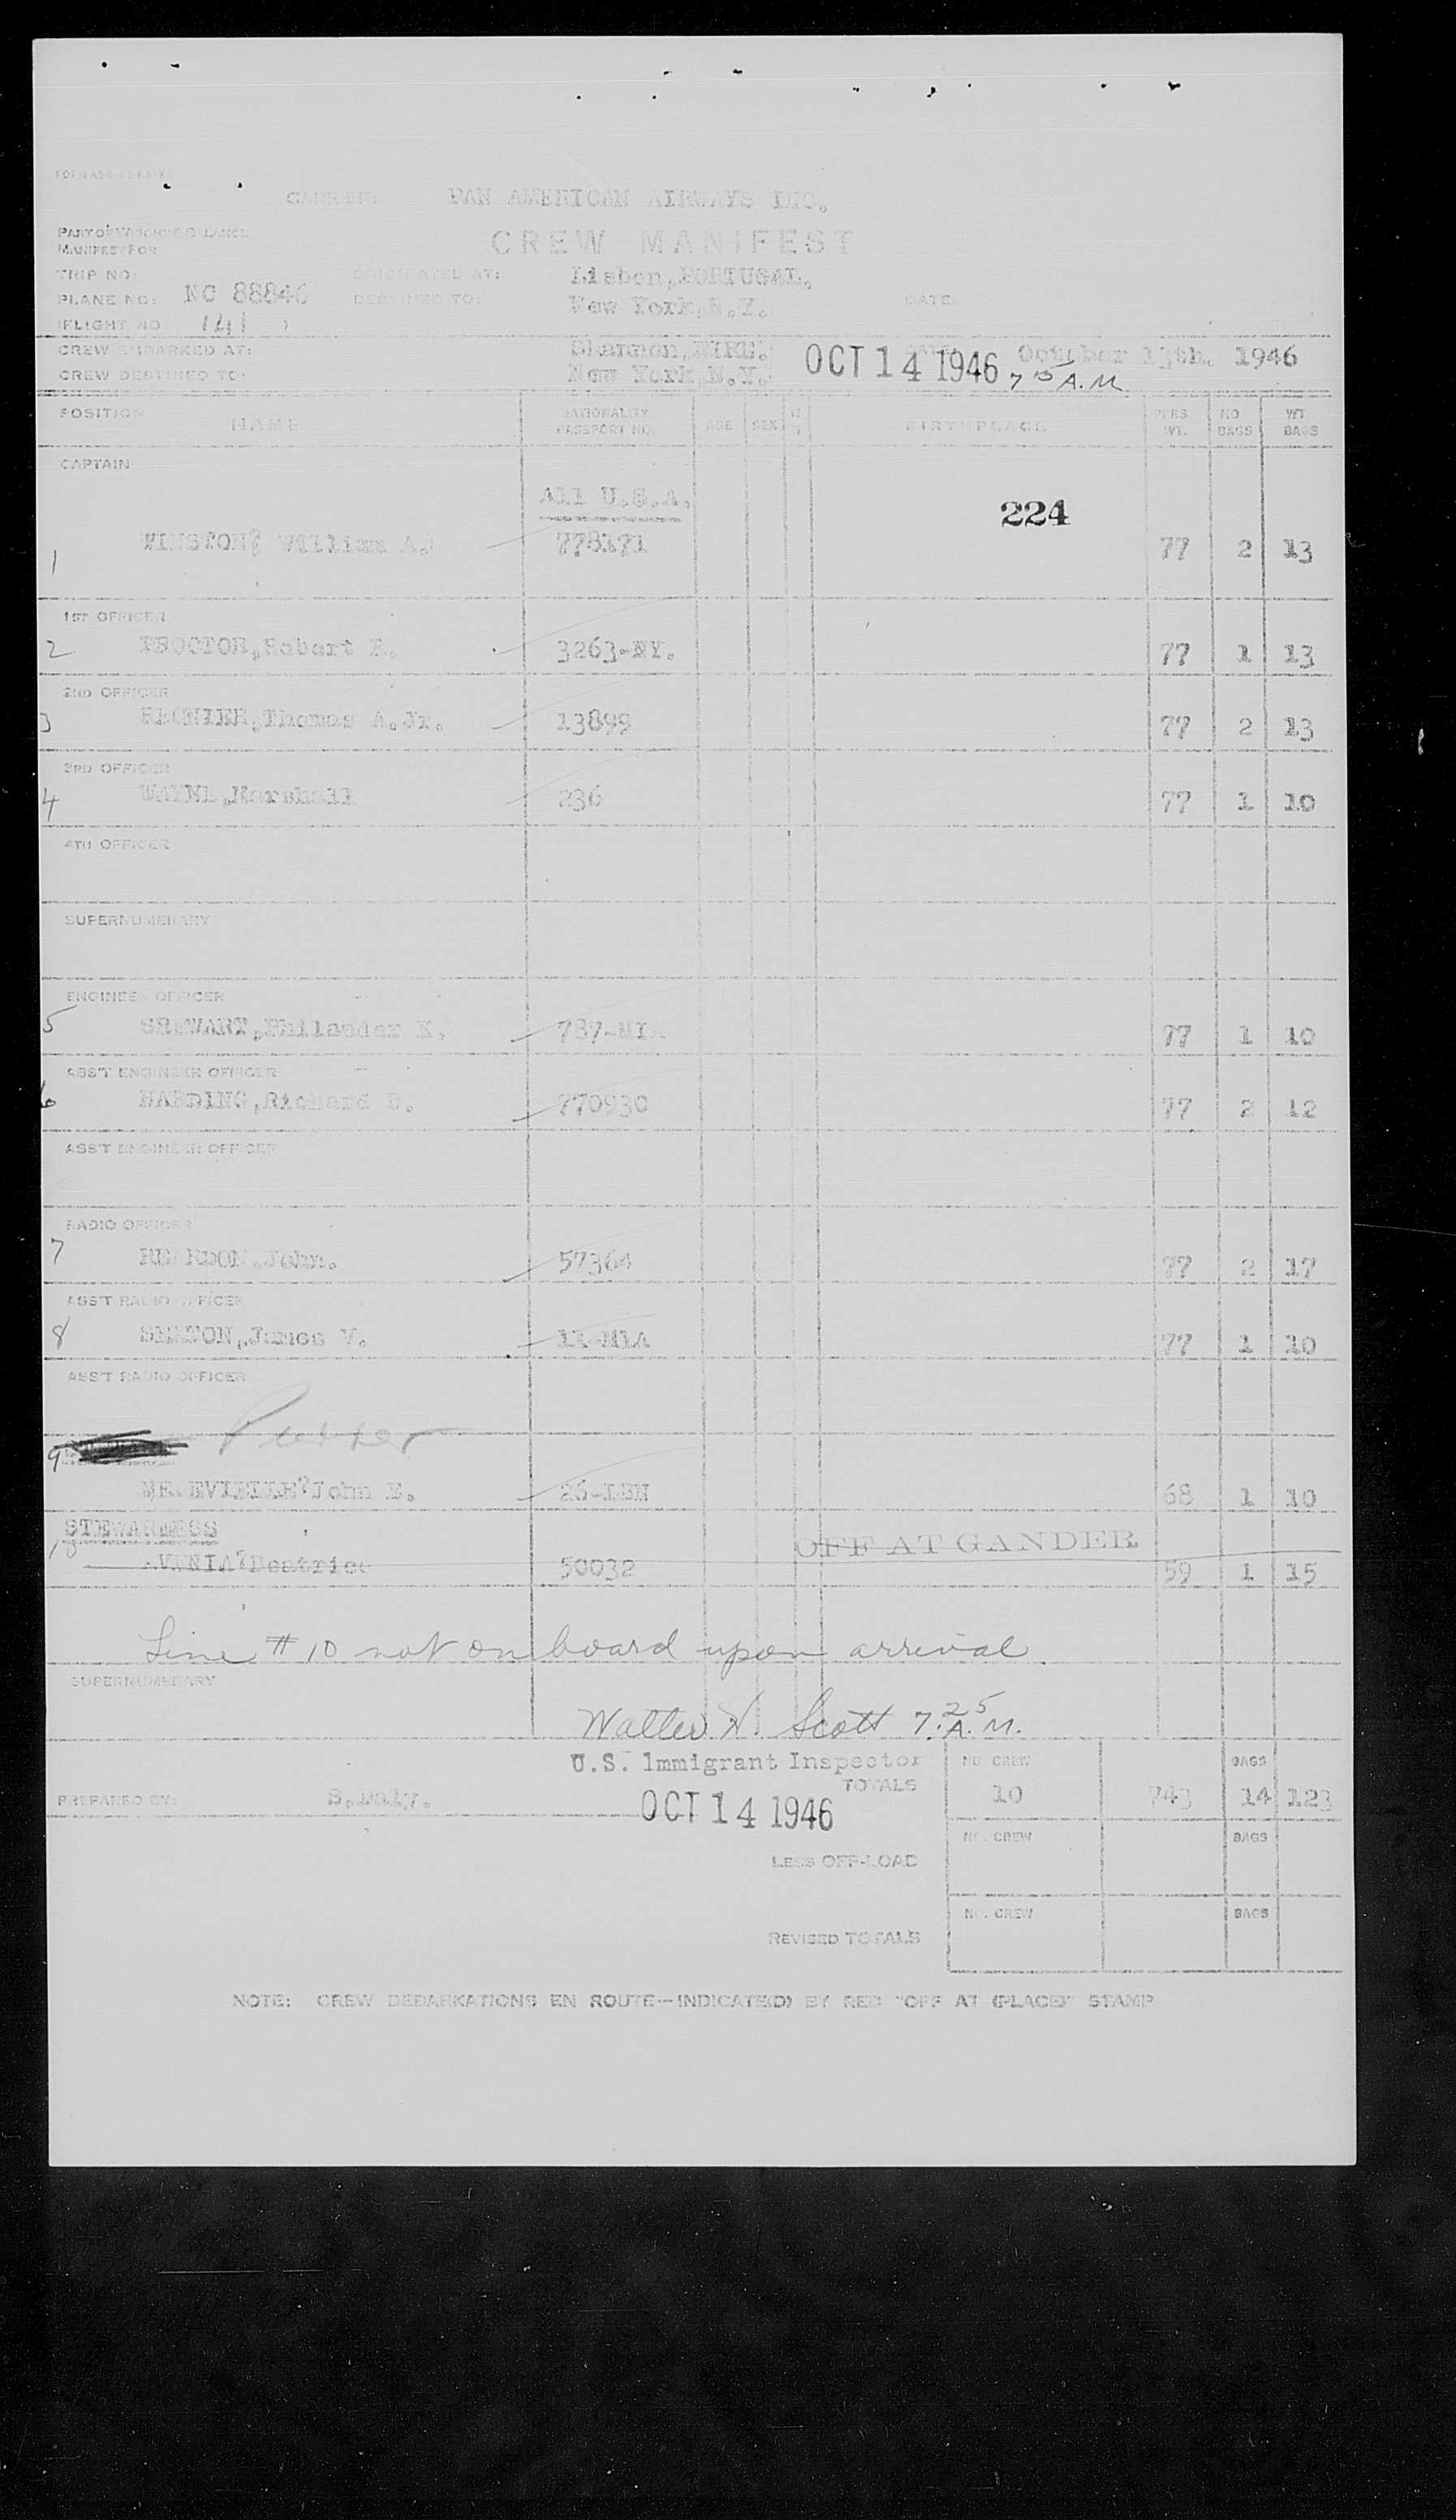 CARRIER: PAN AMERICAN AIRWAYS INC.
PART OF WEIGHT & BALANCE
MANIFEST FOR
CREW MANIFEST
TRIP NO: ORIGINATED AT: Lisbon, PORTUGAL.
PLANE NO: NC 88846 DESTINED TO: New York, N.Y. DATE:
(FLIGHT NO. 141 )
CREW EMBARKED AT: Shannon, EIRE. OCT 14 1946 October 13th. 1946
CREW DESTINED TO: New York, N.Y. 7 15 A.M
POSITION NAME NATIONALITY PASSPORT NO. AGE SEX BIRTHPLACE PERS. WT. NO. BAGS WT. BAGS
CAPTAIN
All U.S.A.
224
1 WINSTON? William A. 778171 77 2 13
1ST OFFICER
2 PROCTOR, Robert 3263-NY. 77 1 13
2ND OFFICER
3 Thomas A. Jr. 13899 77 2 13
3RD OFFICER
4 WAYNE, Marshall 236 77 1 10
4TH OFFICER
SUPERNUMERARY
ENGINEER OFFICER
5 Philander K. 787-MIA 77 1 10
ASS'T ENGINEER OFFICER
6 HARDING, Richard 770930 77 2 12
ASS'T ENGINEER OFFICER
RADIO OFFICER
7 REARDON, John. 57364 77 2 17
ASS'T RADIO OFFICER
8 SEXTON, James V. 11-MIA 77 1 10
ASS'T RADIO OFFICER
9 Purser
John E. 68 1 10
STEWARDESS
OFF AT GANDER
10 Beatrice 50032 59 1 15
Line # 10 not on board upon arrival.
SUPERNUMERARY
Walter W. Scott 7.25 A.M.
U.S. Immigrant Inspector NO. CREW BAGS
TOTALS 10 743 14 123
PREPARED BY: S. Daly.
OCT 14 1946
NO. CREW BAGS
LESS OFF-LOAD
NO. CREW BAGS
REVISED TOTALS
NOTE: CREW DEBARKATIONS EN ROUTE—INDICATE(D) BY RED "OFF AT (PLACE)" STAMP